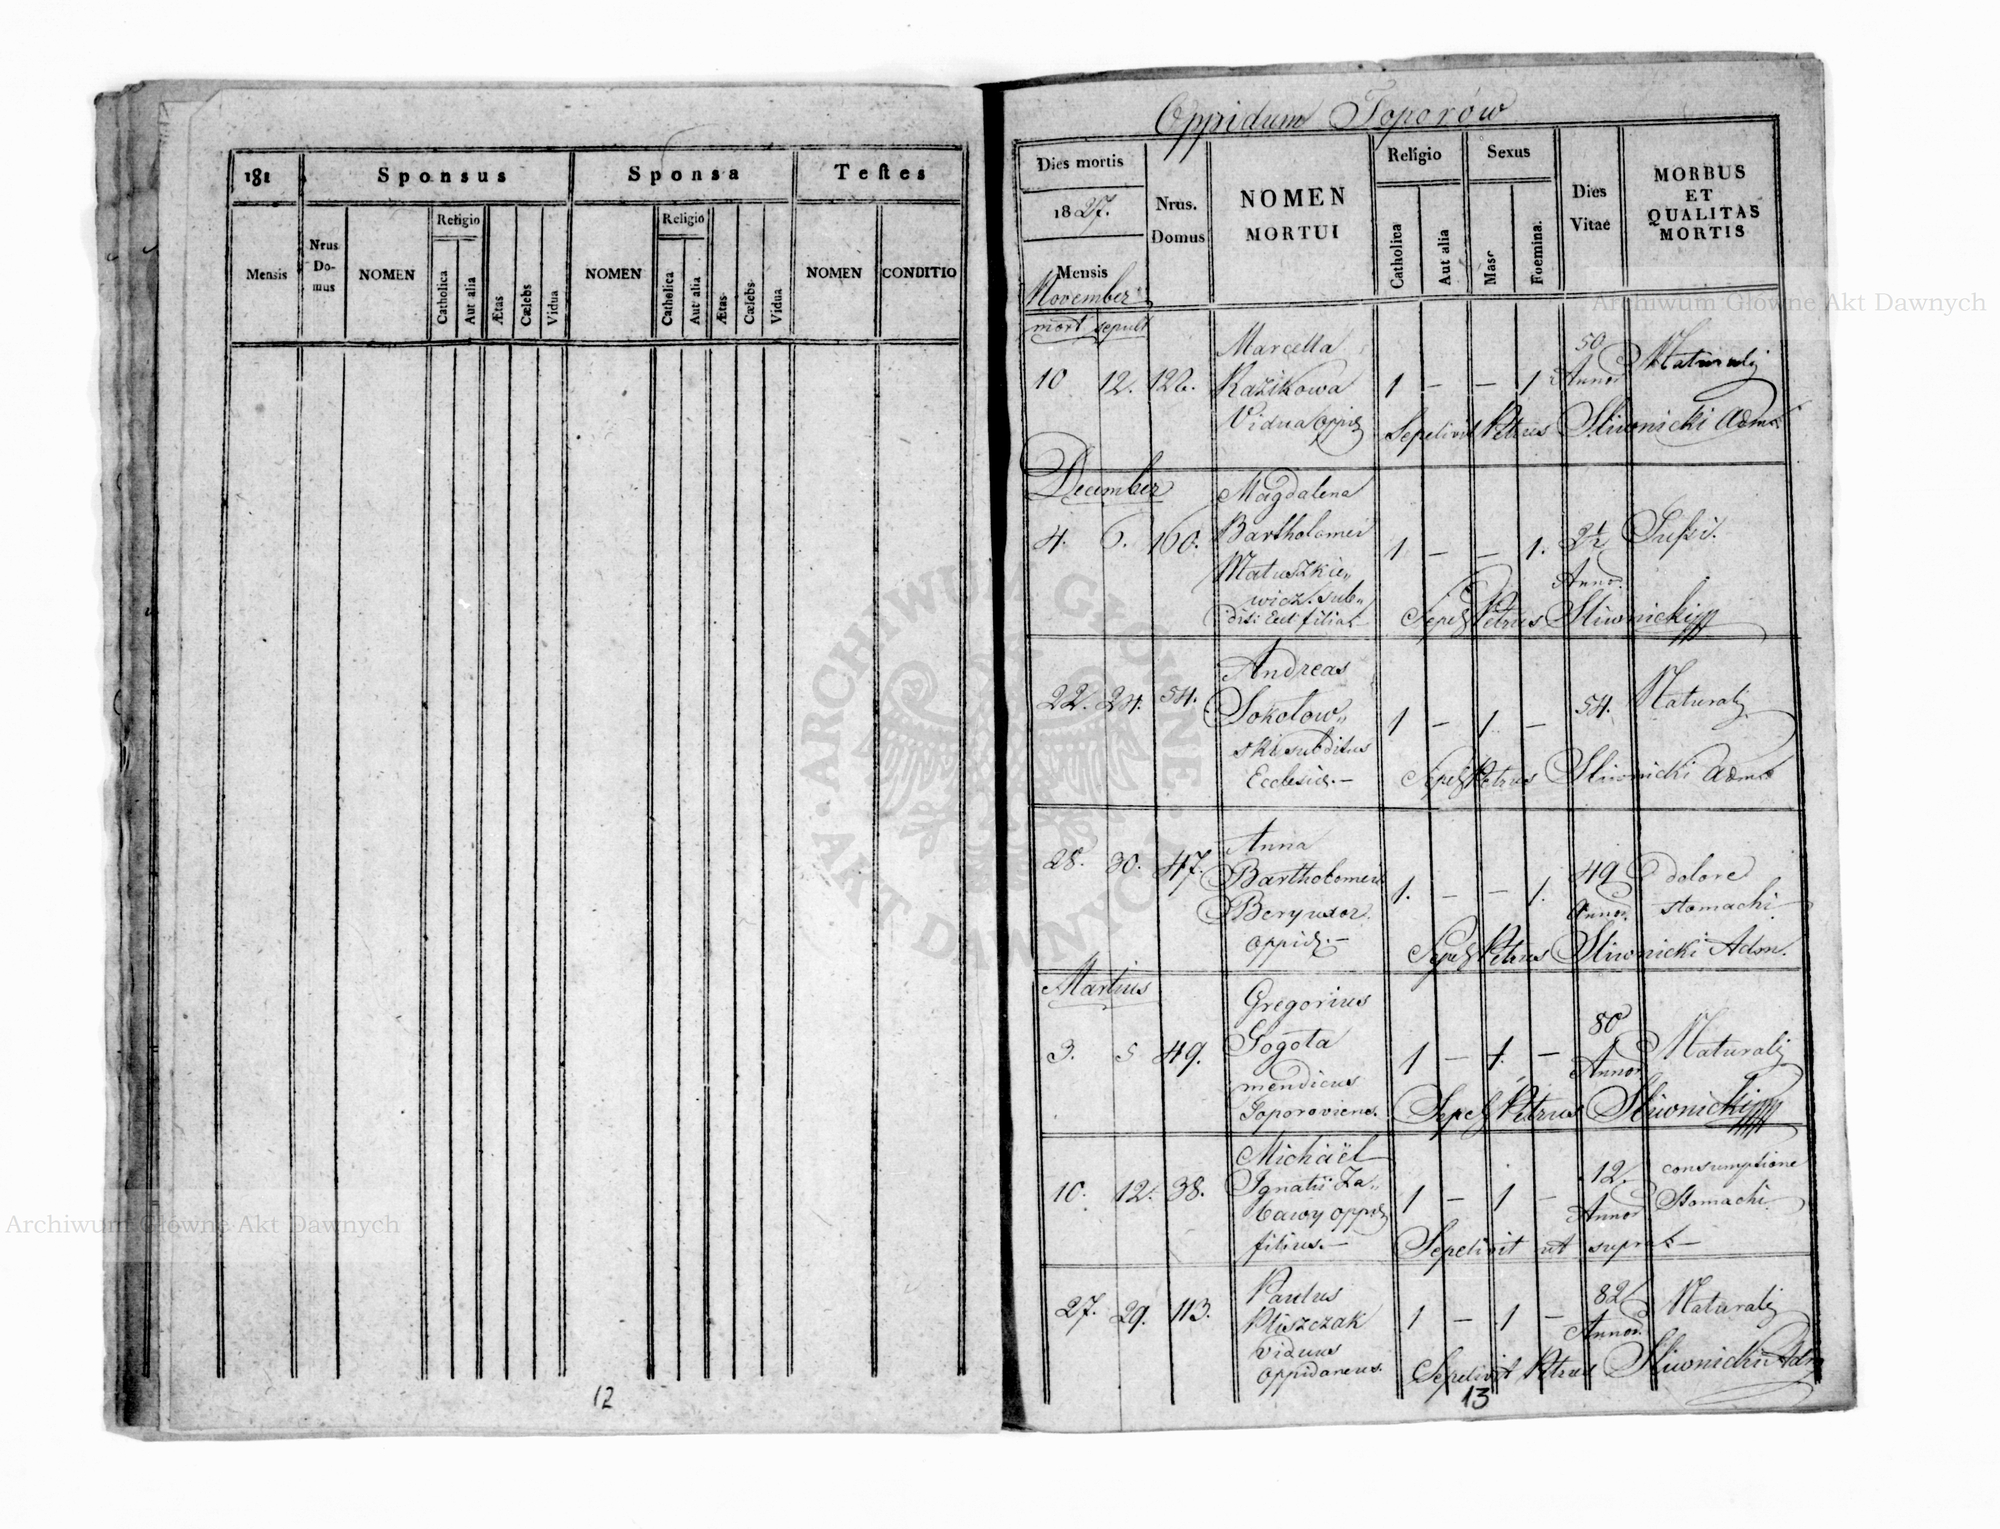 181
Sponsus
Sponsa
Testes
Mensis
Nrus Do- mus
NOMEN
Religio
Catholica
Aut alia
Ætas
Cælebs
Vidua
NOMEN
Religio
Catholica
Aut alia
Ætas
Cælebs
Vidua
NOMEN
CONDITIO
12
Oppidum Toporów
Dies mortis
1827.
Mensis
Nrus. Domus
NOMEN MORTUI
Religio
Catholica
Aut alia
Sexus
Masc
Foemina.
Dies Vitae
MORBUS ET QUALITAS MORTIS
November
mort sepult
Marcella
10 12. 122. Kazikowa 1 – – 1 50 Annor Naturalj
Vidua oppid Sepelivit Petrus Sliwnicki Adm
December
Magdalena
4. 6. 160. Bartholomei 1 – – 1. 2½ Annor. Tussi.
Matuszkie„
wicz. sub„
diti Eccl filia Sepel Petrus Sliwnicki
Andreas
22. 24. 54. Sokołow„ 1 – 1 – 54. Naturalj
ski subditus
Ecclesiæ.– Sepel Petrus Sliwnicki Adm
Anna
28. 30. 47. Bartholomei 1. – – 1. 49 Annor. dolore stomachi
Bery uxor.
oppid.– Sepel Petrus Sliwnicki Adm.
Martius
Gregorius
3. 5 49. Gogota 1 – 1. – 80 Annor Naturalj
mendicus
Toporoviens. Sepel Petrus Sliwnicki
Michaël
10. 12. 38. Ignatii Za„ 1 – 1 – 12. Annor consumptione Stomachi
oppid
filius.– Sepelivit ut supra–
Paulus
27. 29. 113. Pliszczak 1 – 1 – 82 Annor. Naturalj
viduus
oppidaneus. Sepelivit Petrus Sliwnicki Adm
13
Archiwum Główne Akt Dawnych
Archiwum Główne Akt Dawnych
ARCHIWUM GŁÓWNE · AKT DAWNYCH ·